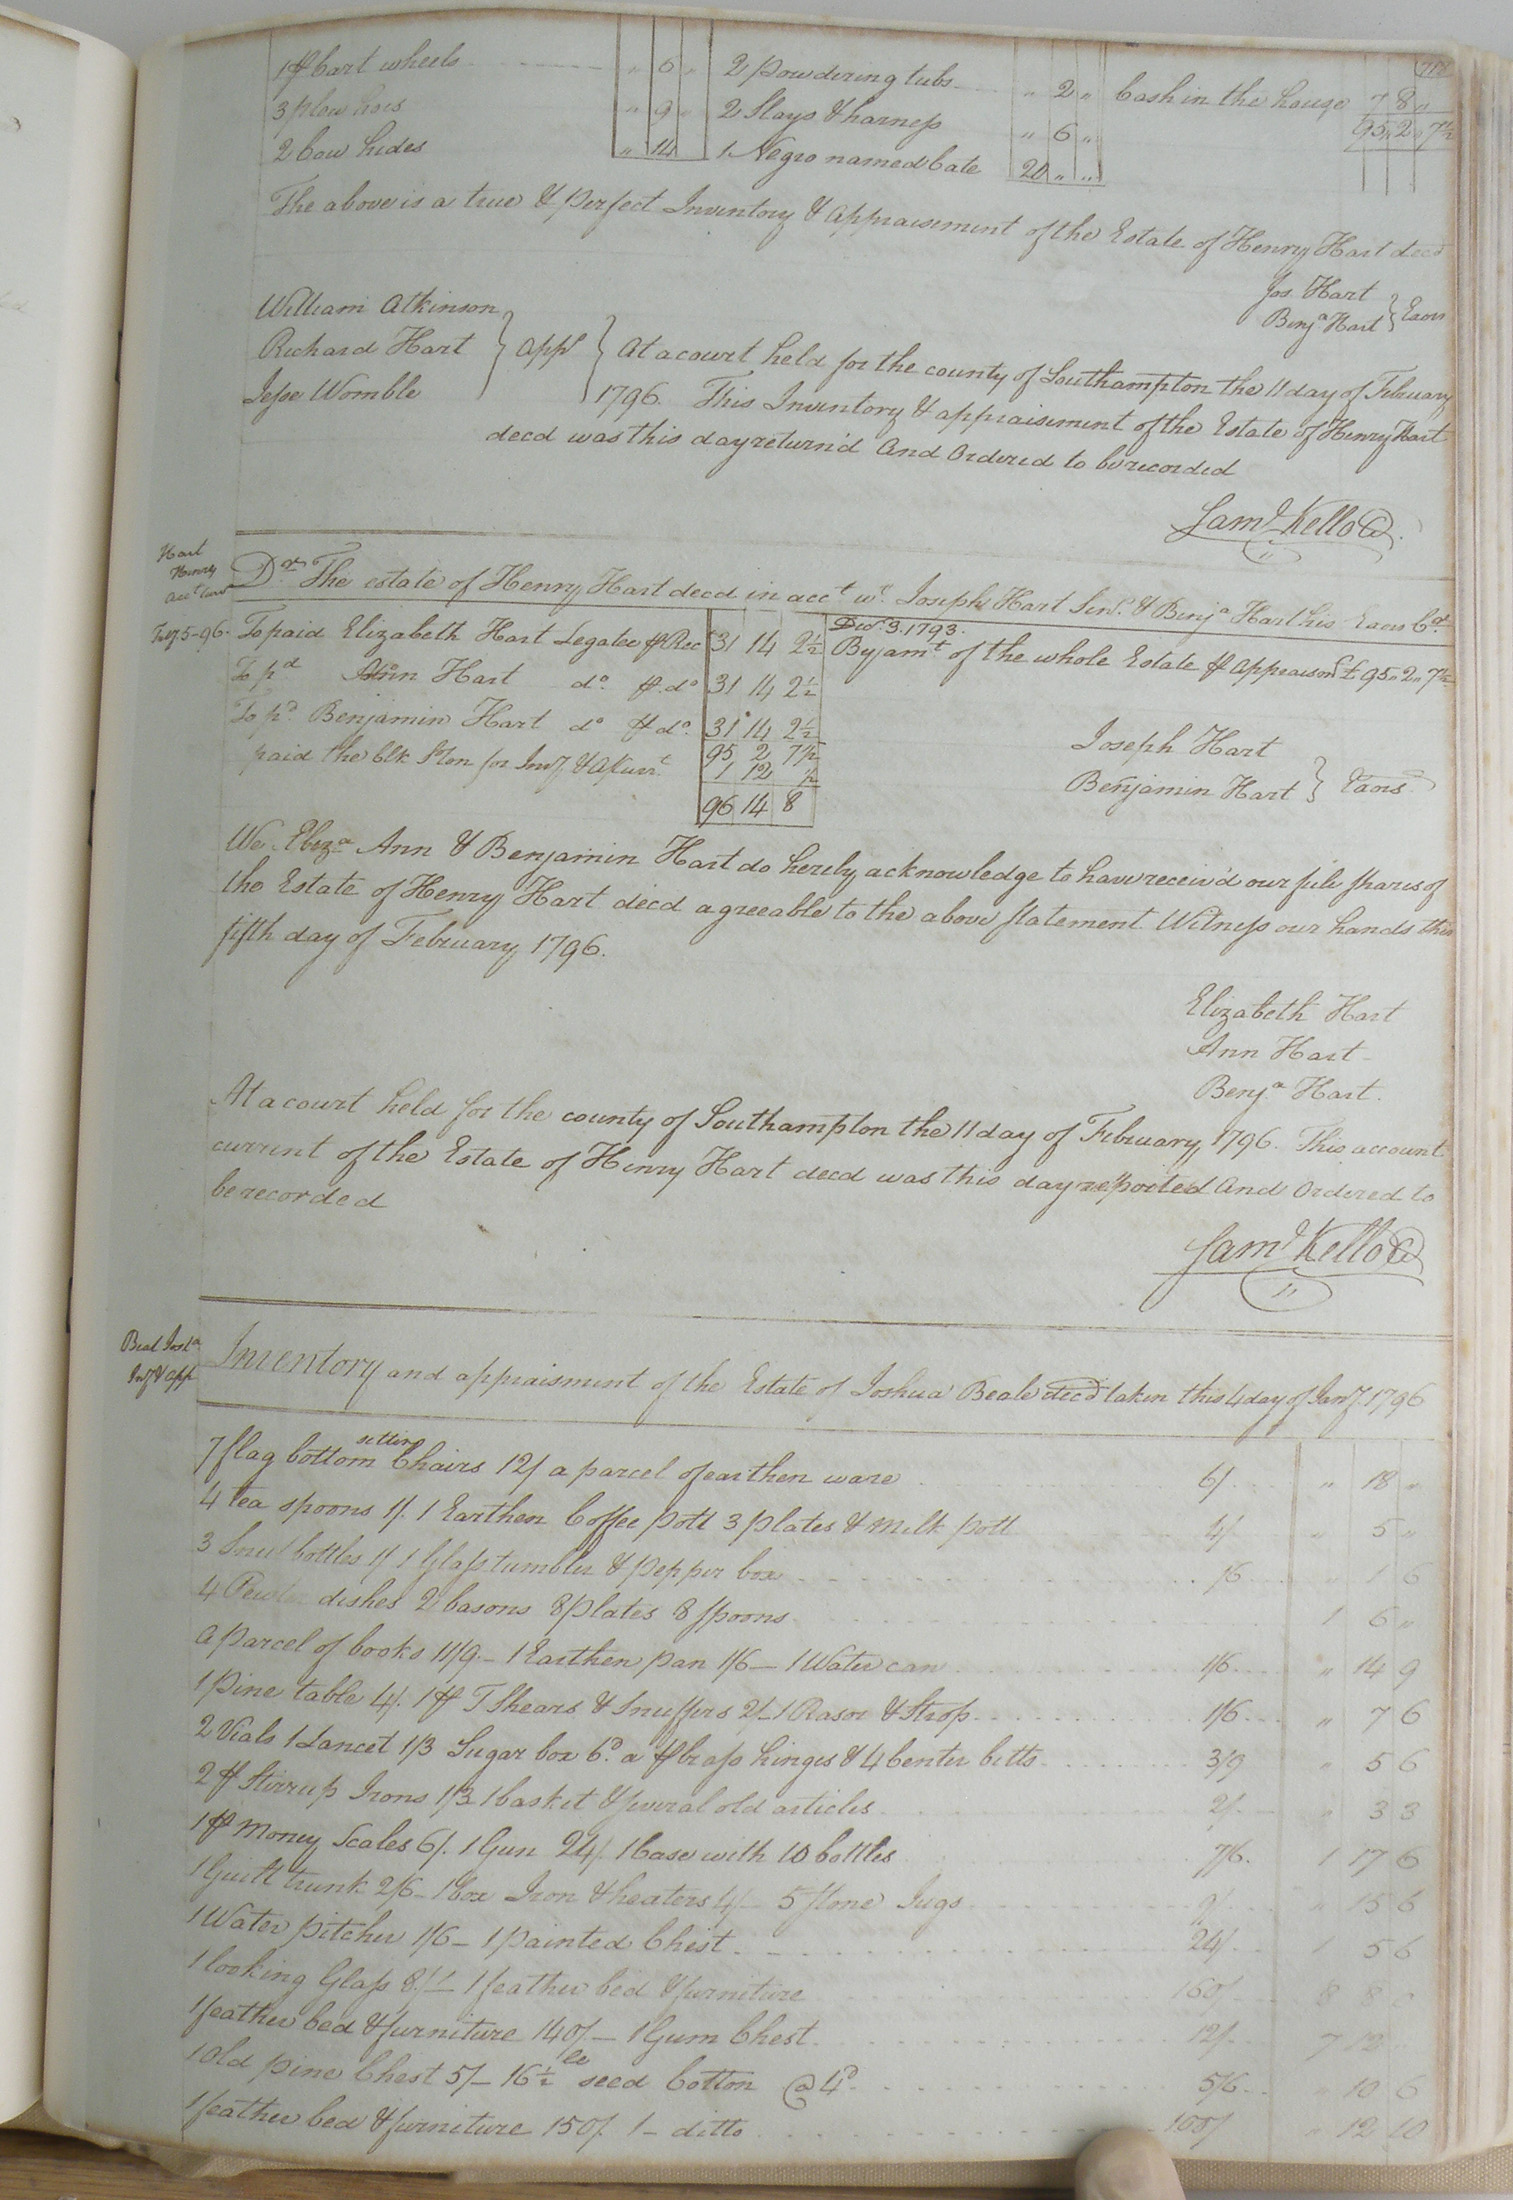 1 pr Cart wheels " 6 " 2 powdering tubs " 2 " Cash in the house 7 8 "
3 plow hoes " 9 " 2 Slays & harness " 6 " 95 " 2 " 7½
2 Cow hides " 14 1 Negro named Cate 20 " "
The above is a true & perfect Inventory & appraisement of the Estate of Henry Hart decd
Jos Hart
Benja Hart } Exors
William Atkinson
Richard Hart } appr
Jesse Womble
At a court held for the county of Southampton the 11 day of February
1796. This Inventory & appraisement of the Estate of Henry Hart
decd was this day return'd And Ordered to be recorded
Saml Kello C
Hart
Henry
acct Curr
Dr The estate of Henry Hart decd in acct wt Joseph Hart Senr & Benja Hart his Exors Cr
Feby 5-96. To paid Elizabeth Hart Legatee pr Rec 31 14 2½
Decr 3. 1793.
By amt of the whole Estate pr appraismt £95 " 2 " 7½
To pd Ann Hart do pr do 31 14 2½
To pd Benjamin Hart do pr do 31 14 2½
95 2 7½
paid the Clk Hon for Invy & A/Curt 1 12 ½
96 14 8
Joseph Hart
Benjamin Hart } Exors
We Eliza Ann & Benjamin Hart do hereby acknowledge to have receiv'd our full shares of
the Estate of Henry Hart decd agreeable to the above statement Witness our hands this
fifth day of February 1796.
Elizabeth Hart
Ann Hart
Benja Hart.
At a court held for the county of Southampton the 11 day of February 1796. This account
current of the Estate of Henry Hart decd was this day reported And Ordered to
be recorded
Saml Kello C
Beal Josha
Invy & app
Inventory and appraisment of the Estate of Joshua Beale decd taken this 4 day of Jany. 1796
7 flag bottom setting Chairs 12/ a parcel of earthen ware 6/ " 18 "
4 tea spoons 1/. 1 Earthen Coffee pott 3 plates & Milk pott 4/ " 5 "
3 Snuf bottles 1/ 1 Glass tumbler & pepper box /6 " 1 6
4 Pewter dishes 2 basons 8 plates 8 spoons 1 6 "
a parcel of books 11/9 - 1 Earthen pan 1/6 - 1 Water can 1/6 " 14 9
1 pine table 4/. 1 pr T Shears & Snuffers 2/ - 1 Rasor & Strop 1/6 " 7 6
2 Vials 1 Lancet 1/3 Sugar box 6d. a pr brass hinges & 4 Center bitts 3/9 " 5 6
2 pr Stirrup Irons 1/3 1 basket & several old articles 2/ " 3 3
1 pr Money Scales 6/. 1 Gun 24/. 1 Case with 10 bottles 7/6. 1 17 6
1 Guilt trunk 2/6 - 1 Box Iron & heaters 4/ - 5 stone Jugs 9/ " 15 6
1 Water pitcher 1/6 - 1 painted Chest 24/. 1 5 6
1 looking Glass 8/ - 1 feather bed & furniture 160/ 8 8 0
1 feather bed & furniture 140/ - 1 Gum Chest 12/. 7 12
1 Old pine Chest 5/ - 16½ lb seed Cotton @ 4d 5/6 " 10 6
1 feather bed & furniture 150/. 1 - ditto 100/ " 12 10